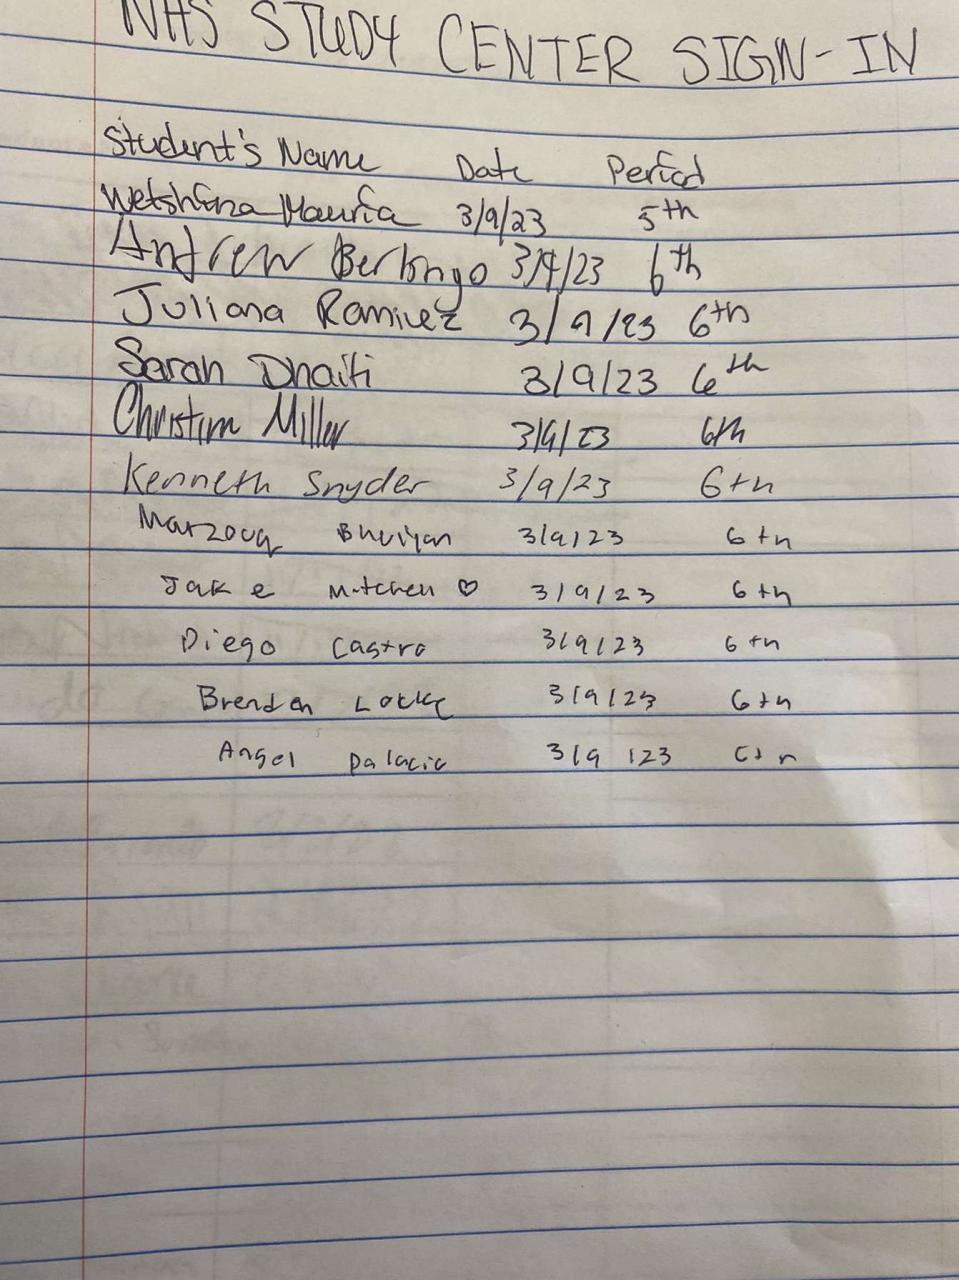 NHS STUDY CENTER SIGN-IN
Student's Name Date Period
3/9/23 5th
Andrew 3/9/23 6th
Juliana Ramirez 3/9/23 6th
Sarah Dhaiti 3/9/23 6th
Miller 3/9/23 6th
Kenneth Snyder 3/9/23 6th
Marzouq Bhuiyan 3/9/23 6th
Jake Mitchell ♡ 3/9/23 6th
Diego Castro 3/9/23 6th
Brenden Locke 3/9/23 6th
Angel Palacio 3/9/23 6th